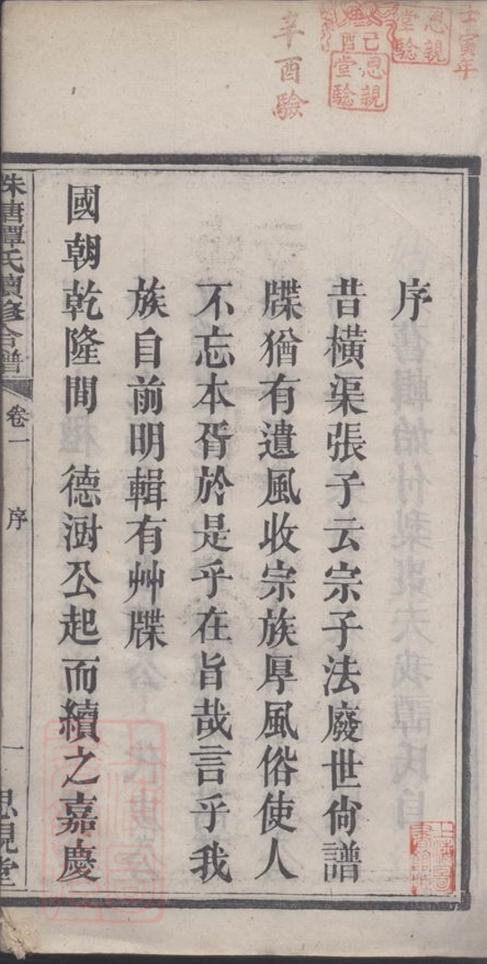 壬寅年
恩親堂驗
己酉
恩親堂驗
辛酉驗
序
昔橫渠張子云宗子法廢世尙譜
牒猶有遺風收宗族厚風俗使人
不忘本胥於是乎在旨哉言乎我
族自前明輯有艸牒
國朝乾隆間 德澍公起而續之嘉慶
珠塘譚氏續修合譜
卷一
序
一
恩親堂